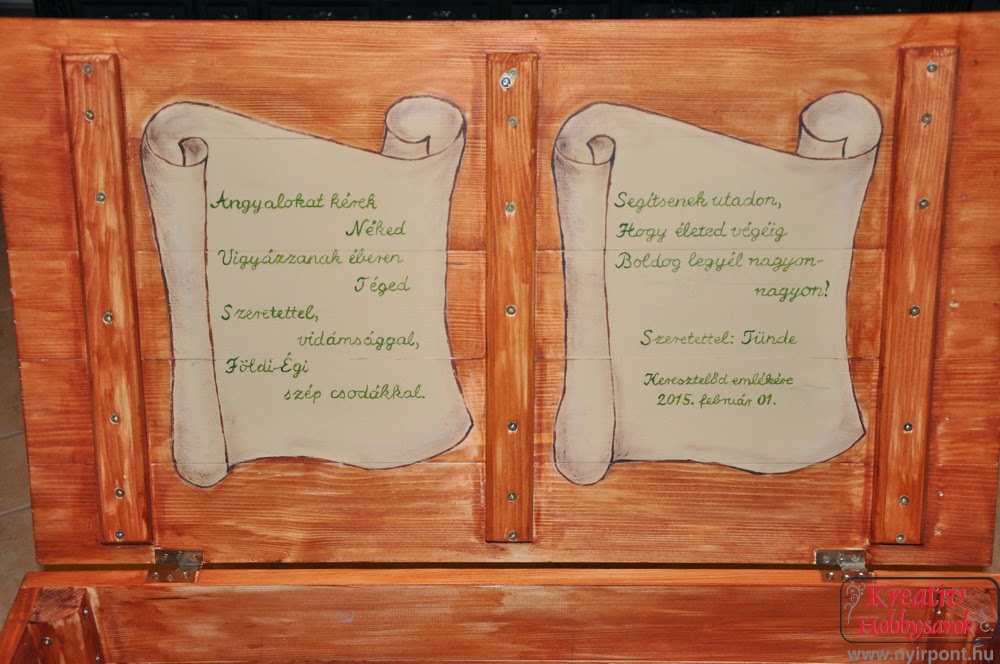 Angyalokat kérek
Néked
Vigyázzanak éberen
Téged
Szeretettel,
vidámsággal,
Földi-Égi
szép csodákkal.
Segítsenek utadon,
Hogy életed végéig
Boldog legyél nagyon-
nagyon!
Szeretettel: Tünde
Keresztelőd emlékére
2015. február 01.
Kreatív
Hobbysarok
www.nyirpont.hu